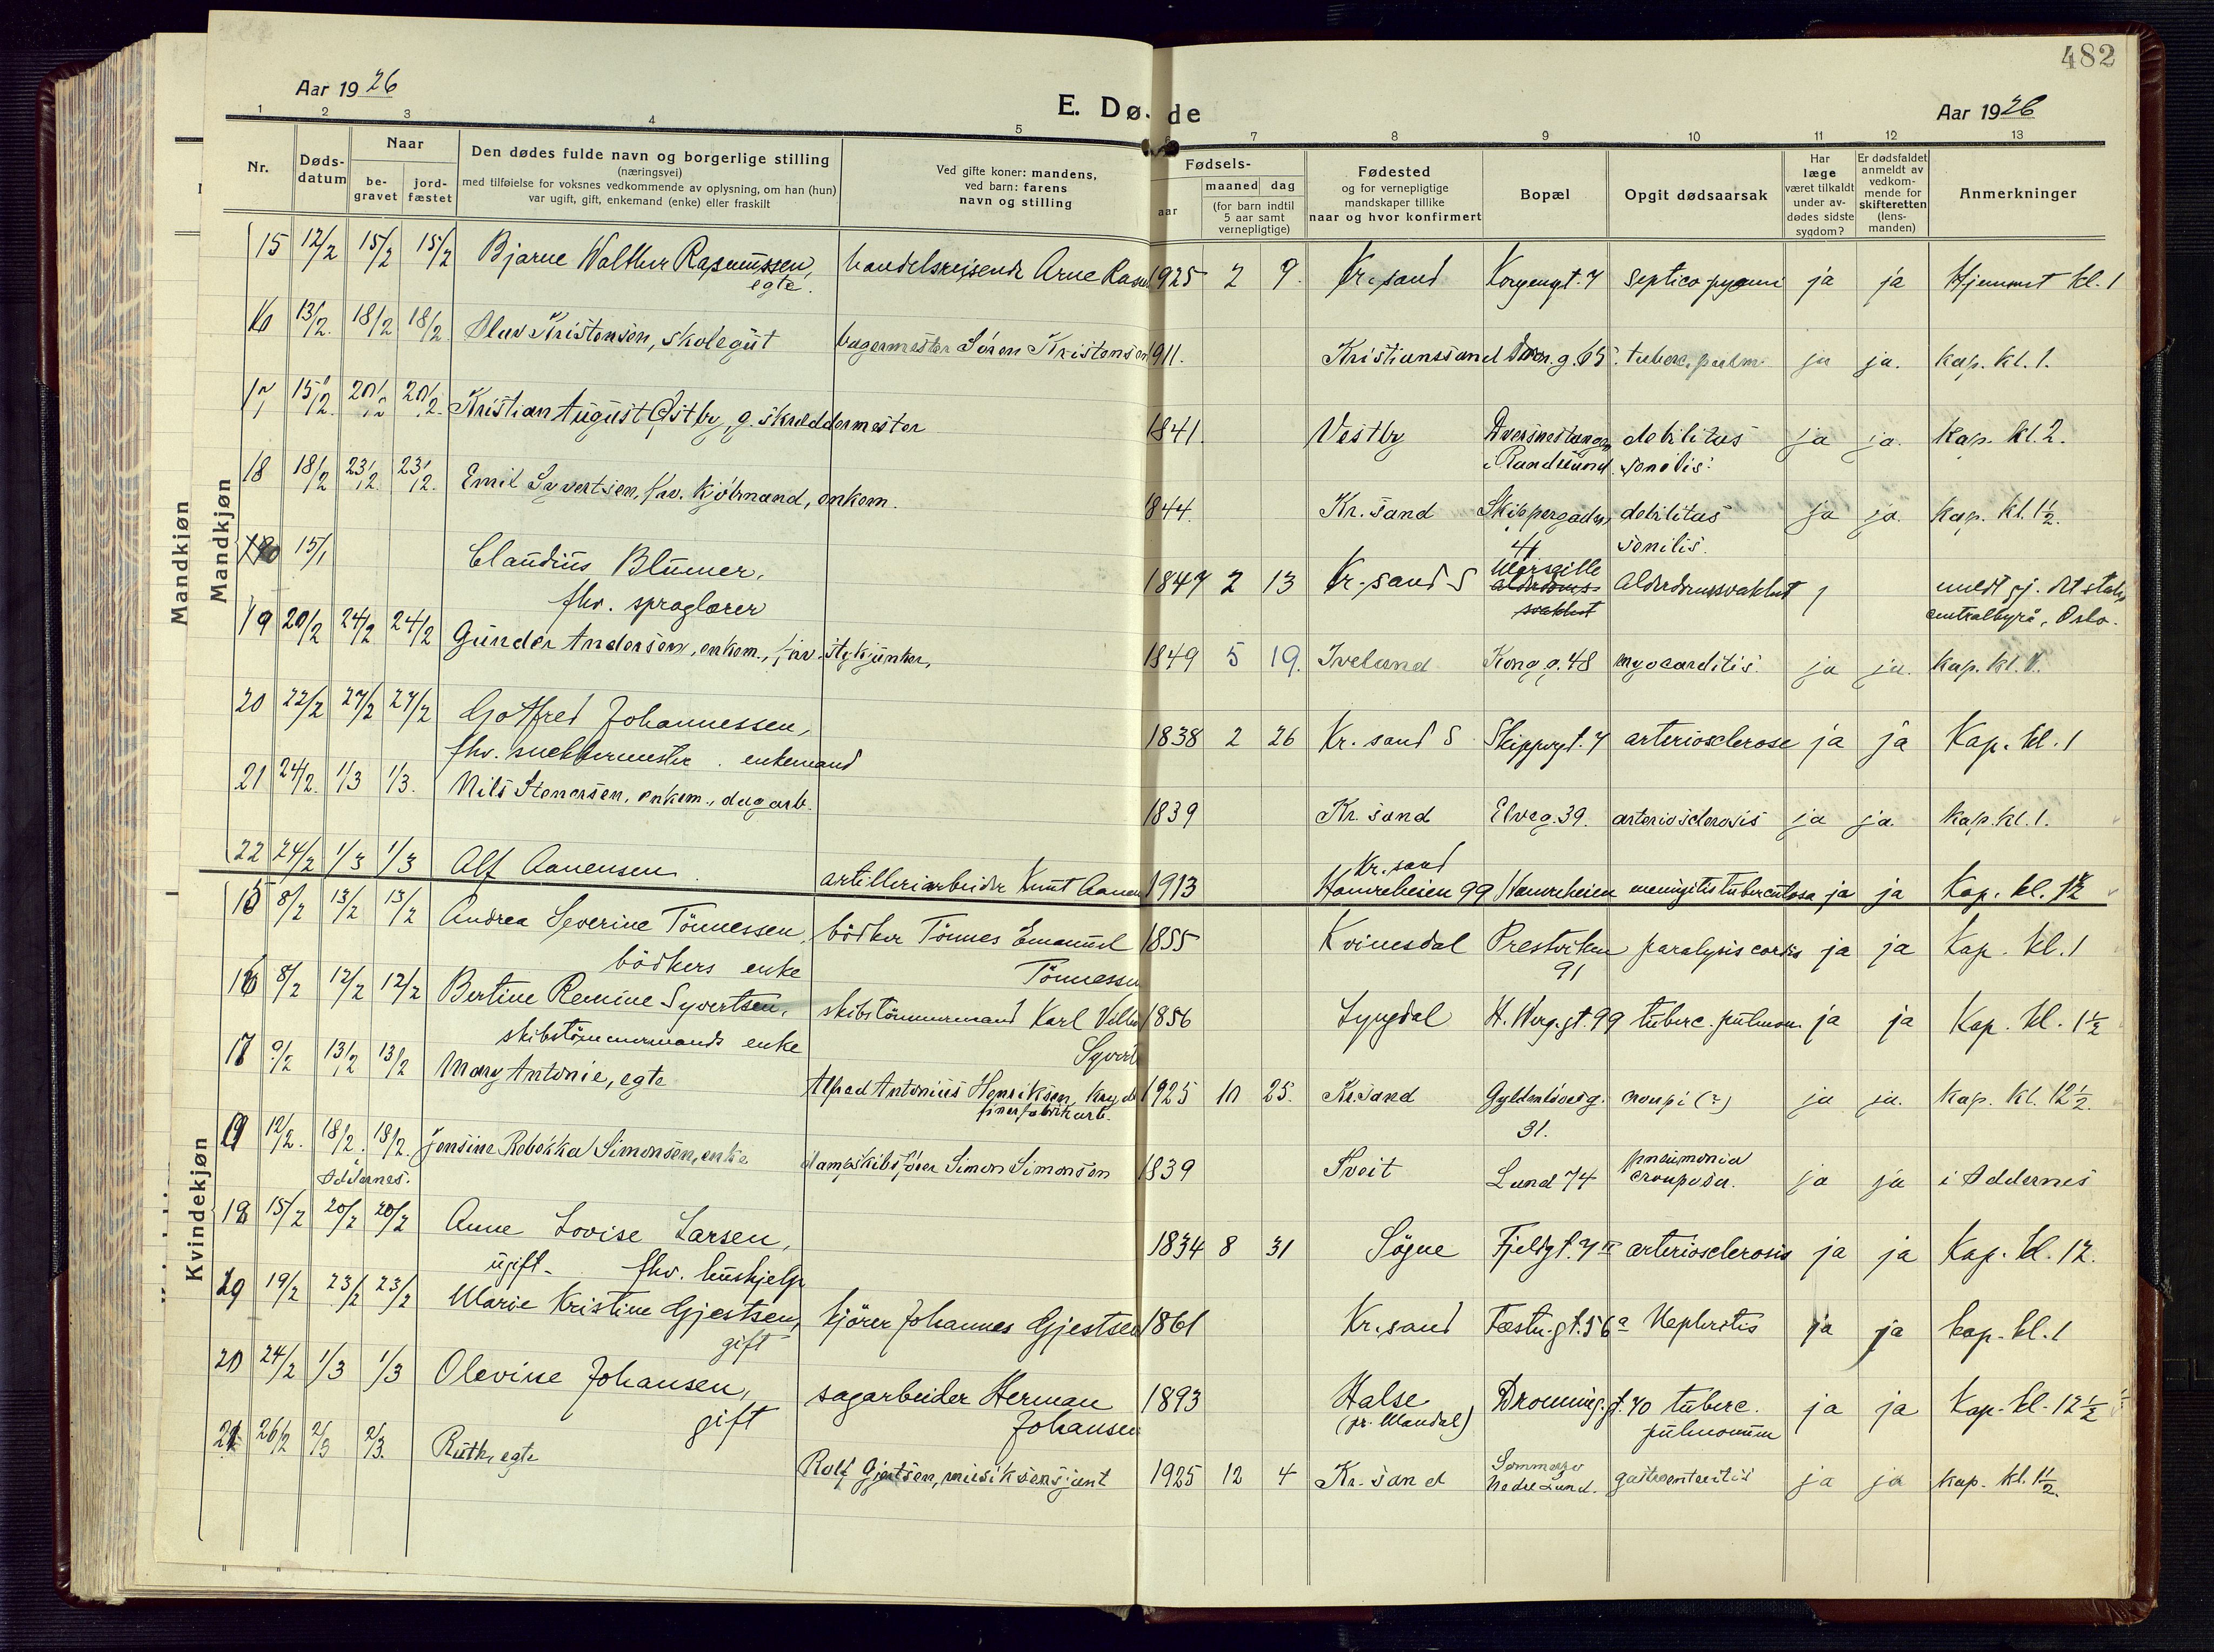 482
Aar 1926
E. Dø
de
Aar 1926
1 2 3 4 5 7 8 9 10 11 12 13
Nr.
Døds-
datum
Naar
be-
gravet
jord-
fæstet
Den dødes fulde navn og borgerlige stilling
(næringsvei)
med tilføielse for voksnes vedkommende av oplysning, om han (hun)
var ugift, gift, enkemand (enke) eller fraskilt
Ved gifte koner: mandens,
ved barn: farens
navn og stilling
Fødsels-
aar
maaned dag
(for barn indtil
5 aar samt
vernepligtige)
Fødested
og for vernepligtige
mandskaper tillike
naar og hvor konfirmert
Bopæl
Opgit dødsaarsak
Har
læge
været tilkaldt
under av-
dødes sidste
sygdom?
Er dødsfaldet
anmeldt av
vedkom-
mende for
skifteretten
(lens-
manden)
Anmerkninger
Mandkjøn
Mandkjøn
15 12/2 15/2 15/2 Bjarne Walther Rasmussen, handelsreisende Arne 1925 2 9. Kr.sand ja ja Hjemmet kl. 1
egte.
16 13/2. 18/2 18/2. Olav Kristensen, skolegut bagermester Søren Kristensen 1911. Kristianssand tuberc. pulm. ja ja. kap. kl. 1.
17 15/2. 20/2 20/2. Kristian August Østby, g. skreddermester 1841. Vestby debilitas ja ja. kap. kl. 2.
i Randesund. senilis.
18 18/2 23/2. 23/2. Emil Syvertsen, frv. kjøbmand, enkem. 1844. Kr.sand Skippergaden debilitas ja ja. kap. kl. 1½.
44 senilis.
15/1 Claudius Blumer, 1847 2 13 Kr.sand S Marsgille Alderdomssvakhet
fhv. sproglærer alderdoms-
svakhet
centralbyrå, Oslo.
19 20/2 24/2 24/2 Gunder Andersen, enkem., frv. stykjunker, 1849 5 19. Iveland Kong.g. 48 myocarditis. ja ja. kap. kl. 1.
20 22/2 27/2 27/2 Gotfred Johannessen, 1838 2 26 Kr.sand S Skippergt. 7 arteriosclerose ja ja Kap. kl. 1
fhv. snekkermester. enkemand
21 24/2. 1/3 1/3. Nils Stenersen, enkem., dagarb. 1839 Kr.sand Elveg. 39. arteriosclerosis ja ja kap. kl. 1.
22 24/2 1/3 1/3 Alf Aanensen. artilleriarbeider Knut 1913 Kr.sand
Hamreheien 99 Hamreheien meningitis tuberculosa ja ja Kap. kl. 1½
Kvindekjøn
15 8/2 13/2 13/2 Andrea Severine Tönnessen, bödker Tönnes Emanuel 1855 Kvinesdal Prestviken paralysis cordis ja ja Kap. kl. 1
bödkers enke Tönnessen 91
16 8/2 12/2 12/2 Bertine Remine Syvertsen, skibstömmermand Karl 1856 Lyngdal H. Werg.gt. 99 tuberc. pulmon. ja ja Kap. kl. 1½
skibstömmermands enke
17 9/2 13/2 13/2 Mary Antonie, egte Alfred Antonius Henriksen, 1925 10 25. Kr.sand Gyldenløvesg. croupi (?) ja ja. kap. kl. 12½.
finerfabrikarb. 31.
12/2. 18/2. 18/2. Jensine Rebekka Simonsen, enke dampskibsfører Simon Simonsen 1839 Tveit Lund 74 pneumonia ja ja i Oddernes
Oddernes. crouposa.
18 15/2 20/2 20/2 Anne Lovise Larsen, 1834 8 31 Søgne Fjeldgt. 7 II arteriosclerosis ja ja Kap. kl. 12.
ugift - fhv. hushjelp
19/2 23/2 23/2 Marie Kristine Gjestsen, kjörer Johannes Gjestsen 1861 Kr.sand Festn.gt. 56 a Nephritis ja ja kap. kl. 1
gift
20 24/2 1/3 1/3 Olevine Johansen, sagarbeider Herman 1893 Halse Dronning.gt. 70 tuberc. ja ja Kap. kl. 12½
gift Johansen (pr. Mandal) pulmonum
21 26/2 2/3 2/3. Ruth, egte Rolf Gjertsen, musiksersjant 1925 12 4 Kr.sand Nedre Lund. gastroenteritis ja ja kap. kl. 1½.